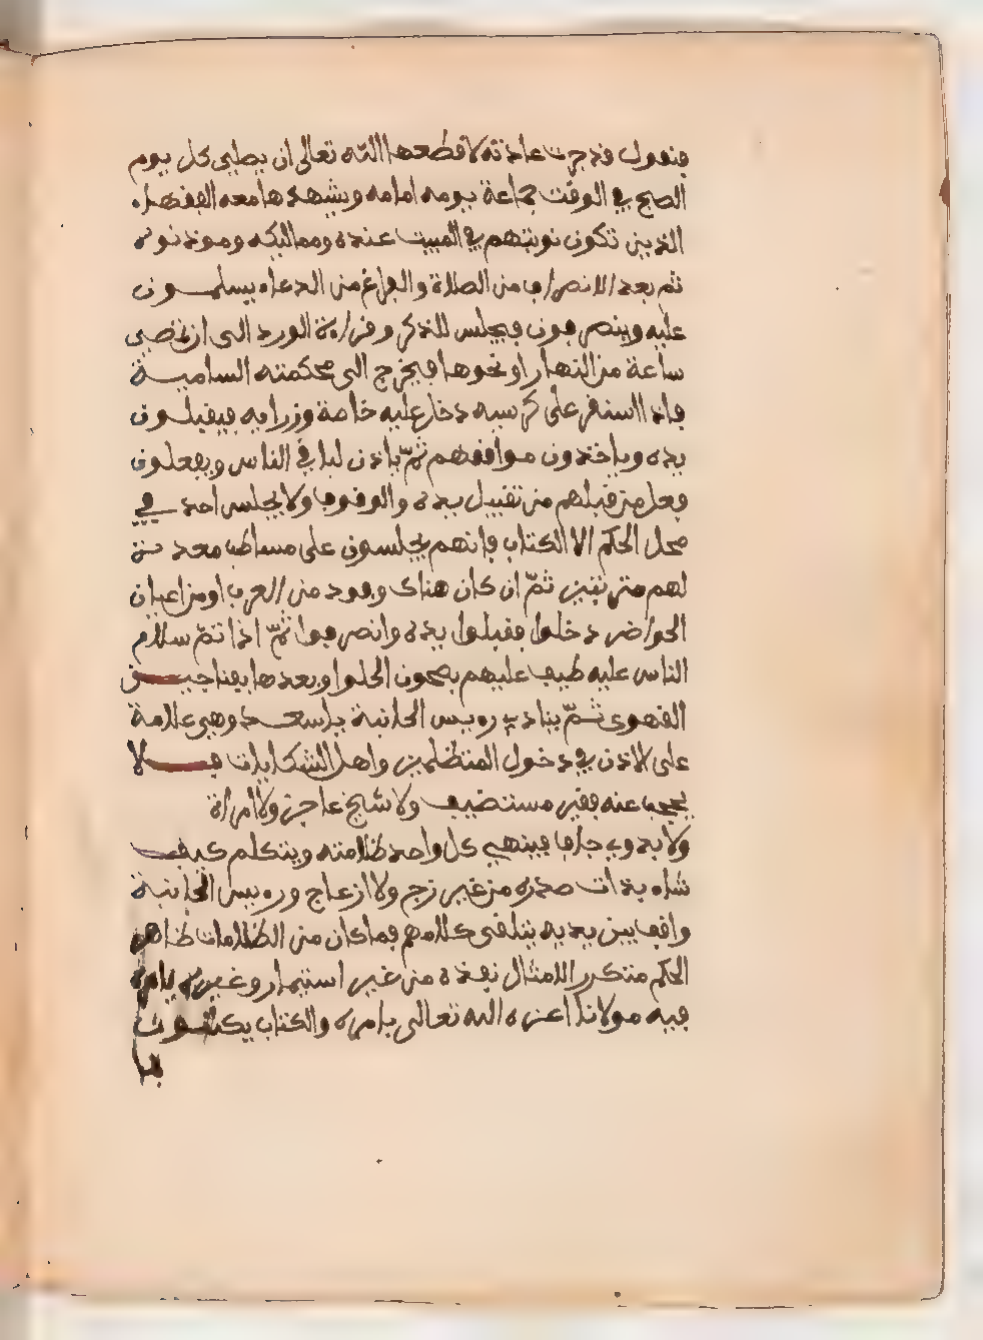 فنقول قد جرت عادته لا قطعها الله تعالى ان يصلي كل يوم
الصبح في الوقت جماعة يومه امامه ويشهدها معه الفقهاء
الذين تكون نوبتهم في المبيت عنده ومماليكه وموذنوه
ثم بعد الانصراف من الصلاة والفراغ من الدعاء يسلمون
عليه وينصرفون فيجلس للذكر وقراءة الورد الى ان تمضي
ساعة من النهار او نحوها فيخرج الى محكمته السامية
فاذا استقر على كرسيه دخل عليه خاصة وزرايه فيقبلون
يده وياخذون مواقفهم ثم ياذن لباقي الناس ويفعلون
فعل من قبلهم من تقبيل يده والوقوف ولا يجلس احد في
محل الحكم الا الكتاب فانهم يجلسون على مساطب معدة
لهم ثم ان كان هناك وفود من العرب او من اعيان
الحواضر دخلوا فقبلوا يده وانصرفوا ثم اذا تم سلام
الناس عليه طيف عليهم بصحون الحلوا وبعدها بفناجين
القهوى ثم ينادي رويس الحانبة وهي علامة
على الاذن في دخول المتظلمين واهل الشكايات فلا
يحجب عنه فقير مستضيف ولا شيخ عاجز ولا امراة
ولا بدوي جاف فينهي كل واحد ظلامته ويتكلم كيف
شاء بذات صدره من غير زجر ولا ازعاج ورويس الحانبة
واقف بين يديه يتلقى كلامهم فما كان من الظلامات ظاهر
الحكم متكرر الامثال نفذه من غير استيمار وغيره يامره
فيه مولانا اعزه الله تعالى بامره والكتاب يكتبون